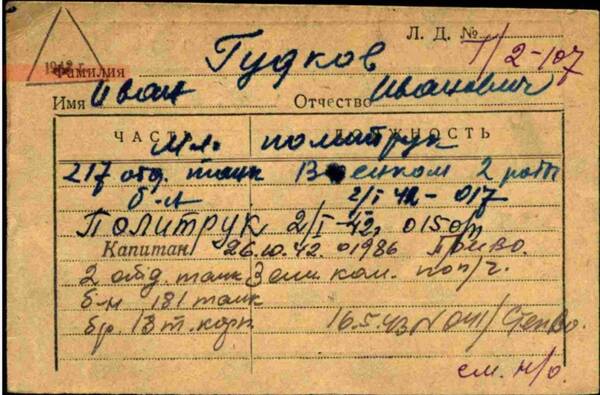 Л. Д. № 1/2-107
1942 г.
Фамилия Гудков
Имя Иван Отчество Иванович
ЧАСТЬ ДОЛЖНОСТЬ
Мл. политрук
217 отд. танк Военком 2 роты
б-н 2/I 42 - 017
Политрук 2/I-42г. 015
Капитан 26.10.42. 01986
2 отд. танк Зам. ком. поп/ч.
б-н 181 танк
бр 18 т. корп 16.5.43 N 041/
см. н/о.